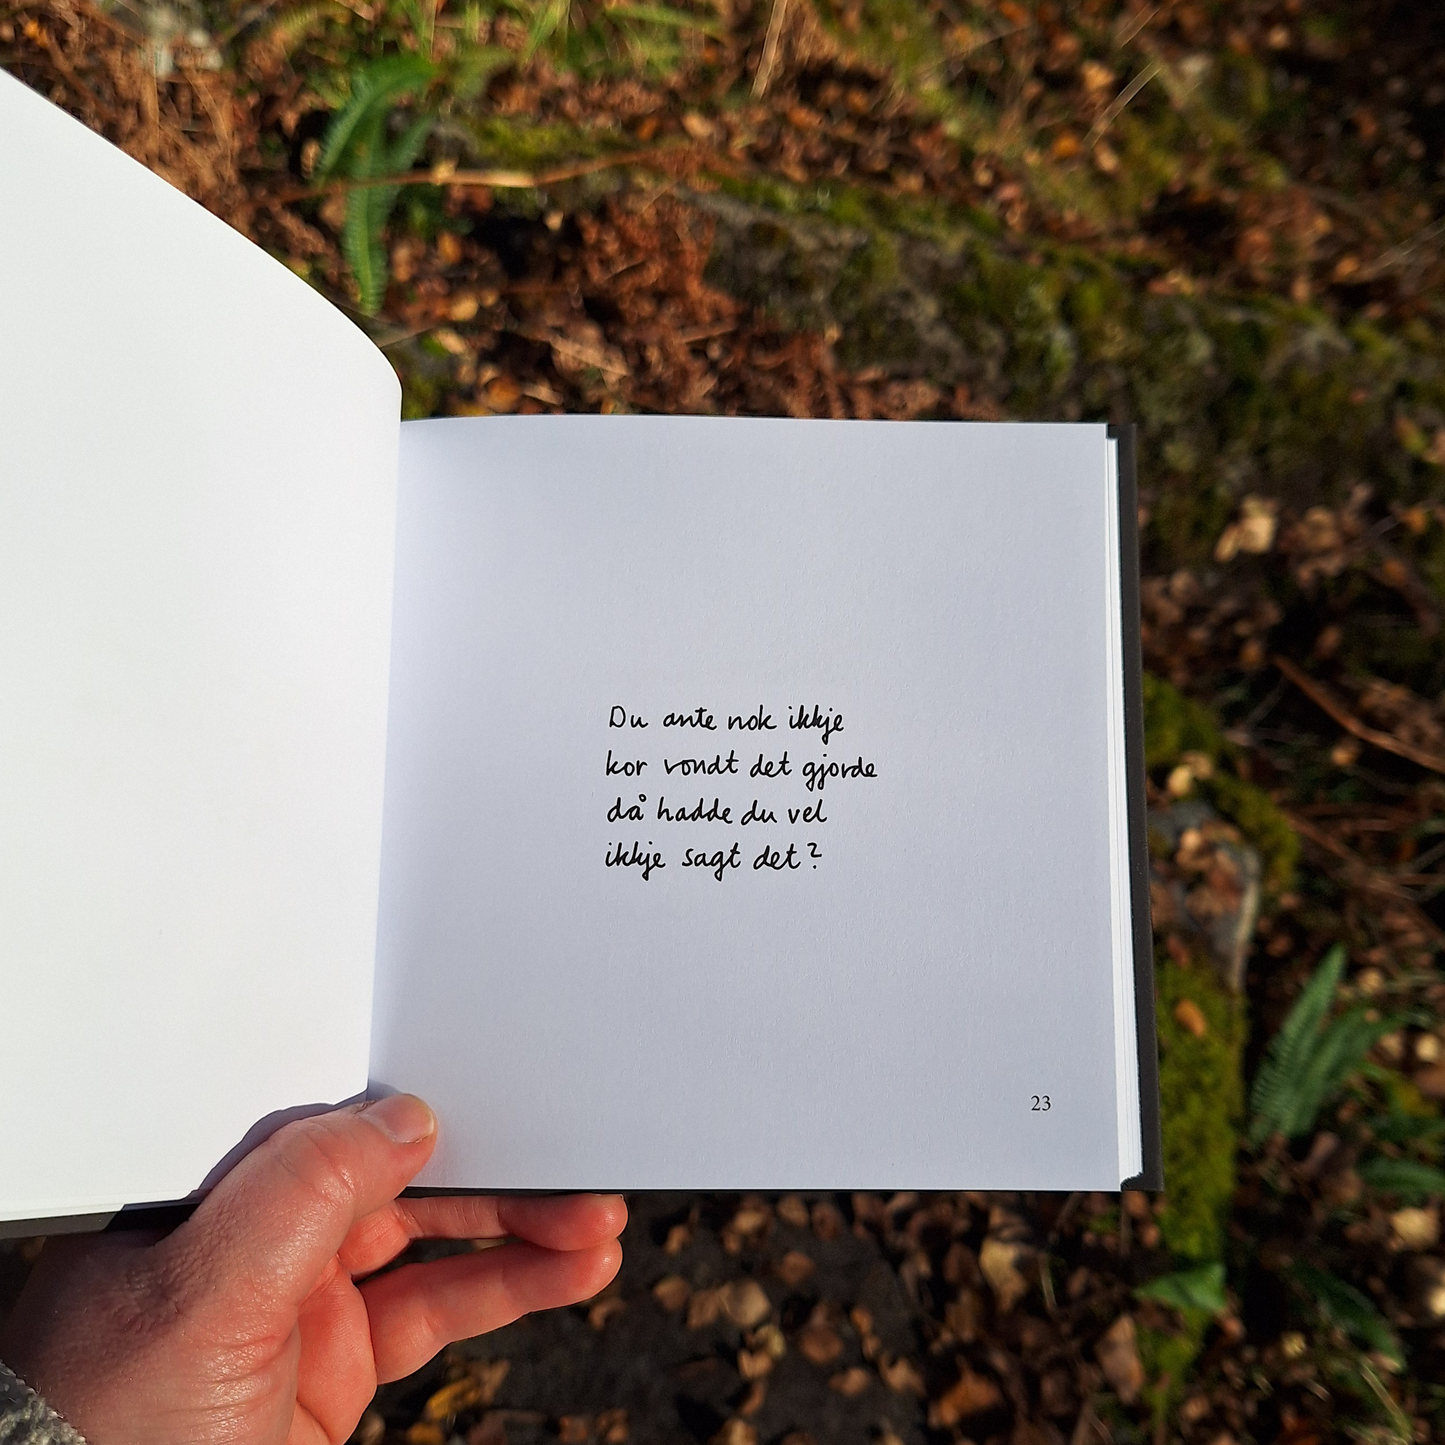 Du ante nok ikkje
kor vondt det gjorde
då hadde du vel
ikkje sagt det?
23